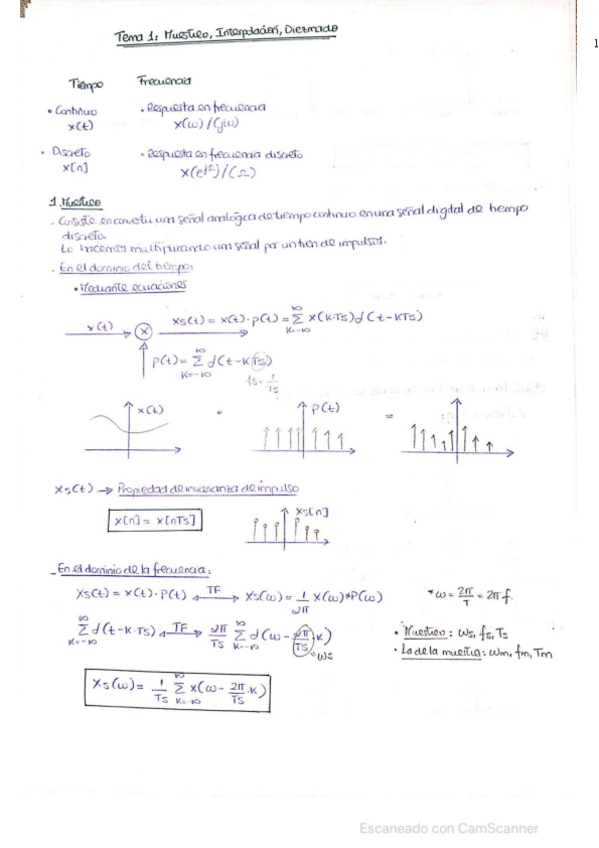 1
Tema 1: Muestreo, Interpolación, Diezmado
Tiempo Frecuencia
• Continuo - Respuesta en frecuencia
x(t) X(ω)/(jω)
• Discreto - Respuesta en frecuencia discreto
x[n] X(e^jΩ)/(Ω)
1. Muestreo
- Cosiste en convertir una señal analógica de tiempo continuo en una señal digital de tiempo
discreto.
Lo hacemos multiplicando una señal por un tren de impulsos.
- En el dominio del tiempo:
• Mediante ecuaciones
x(t) → ⊗ Xs(t) = x(t)·p(t) = ∑_{K=-∞}^{∞} x(K·Ts)d(t-KTs)
p(t) = ∑_{K=-∞}^{∞} d(t-K(Ts))
fs = 1/Ts
x(t) • p(t) =
Xs(t) → Propiedad de invarianza de impulso
x[n] = x[nTs] Xs[n]
- En el dominio de la frecuencia:
Xs(t) = x(t)·P(t) ←TF→ Xs(ω) = 1/2π X(ω)*P(ω) *ω = 2π/T = 2πf.
∑_{K=-∞}^{∞} d(t-K·Ts) ←TF→ 2π/Ts ∑_{K=-∞}^{∞} d(ω - (2π/Ts)K) • Muestreo: ωs, fs, Ts
ωs • La de la muestra: ωm, fm, Tm
Xs(ω) = 1/Ts ∑_{K=-∞}^{∞} X(ω - 2π/Ts·K)
Escaneado con CamScanner